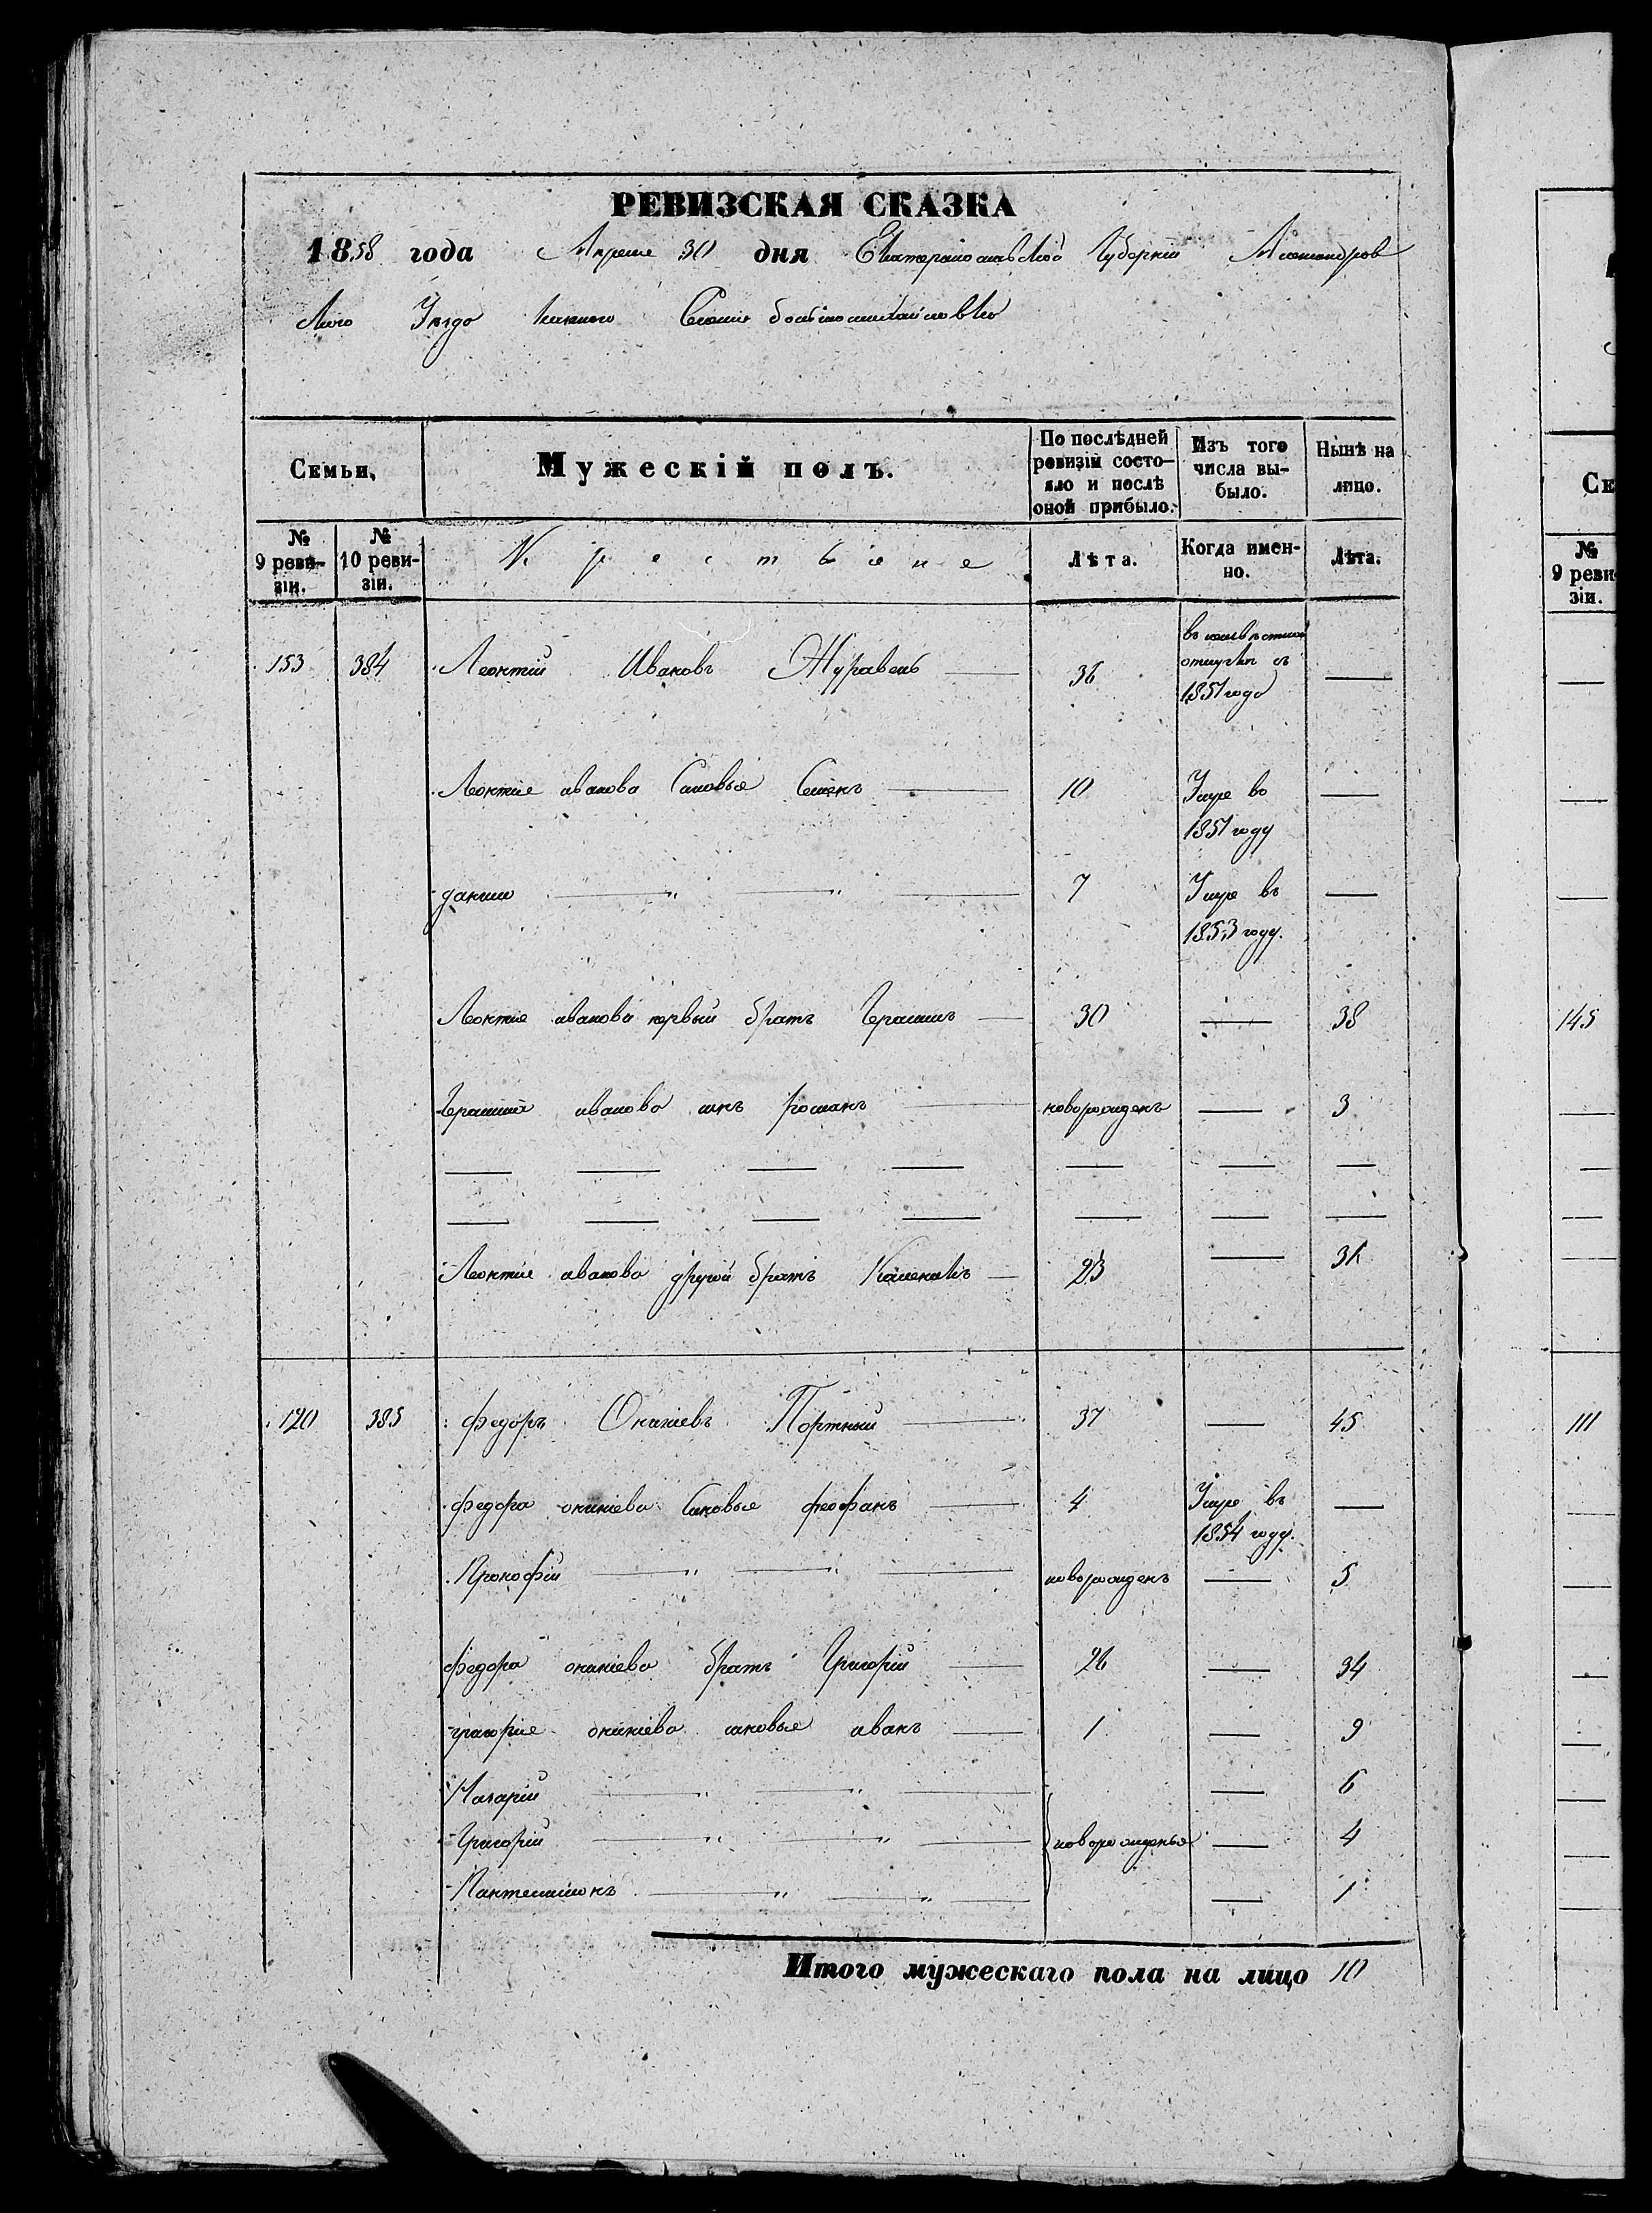 РЕВИЗСКАЯ СКАЗКА
1858 года Апреля 30 дня Екатеринославской Губернии Александров
ского Уезда Селения Большомихайловки
Семьи,
Мужескій полъ.
По послѣдней ревизіи состояло и послѣ оной прибыло.
Изъ того числа выбыло.
Нынѣ на лицо.
№ 9 ревизіи.
№ 10 ревизіи.
Крестьяне
Лѣта.
Когда именно.
Лѣта.
153 384 Леонтій Ивановъ Журавель 36 въ отлучкѣ съ 1851 года —
Леонтія иванова Сыновья Семенъ 10 Умре во 1851 году —
данило " " 7 Умре въ 1853 году. —
Леонтія иванова первый братъ Герасимъ 30 — 38
Герасима иванова сынъ романъ новорожденъ — 3
Леонтія иванова другой братъ 23 — 31
120 385 федоръ Портный 37 — 45
федора Сыновья феофанъ 4 Умре въ 1854 году. —
Прокофій " " новорожденъ — 5
федора братъ Григорій 26 — 34
григорія сыновья иванъ 1 — 9
Назарій " " — 6
Григорій " " новорожденые — 4
Пантелимонъ " " — 1
Итого мужескаго пола на лицо 10
Се
№ 9 реви зіи.
145
111